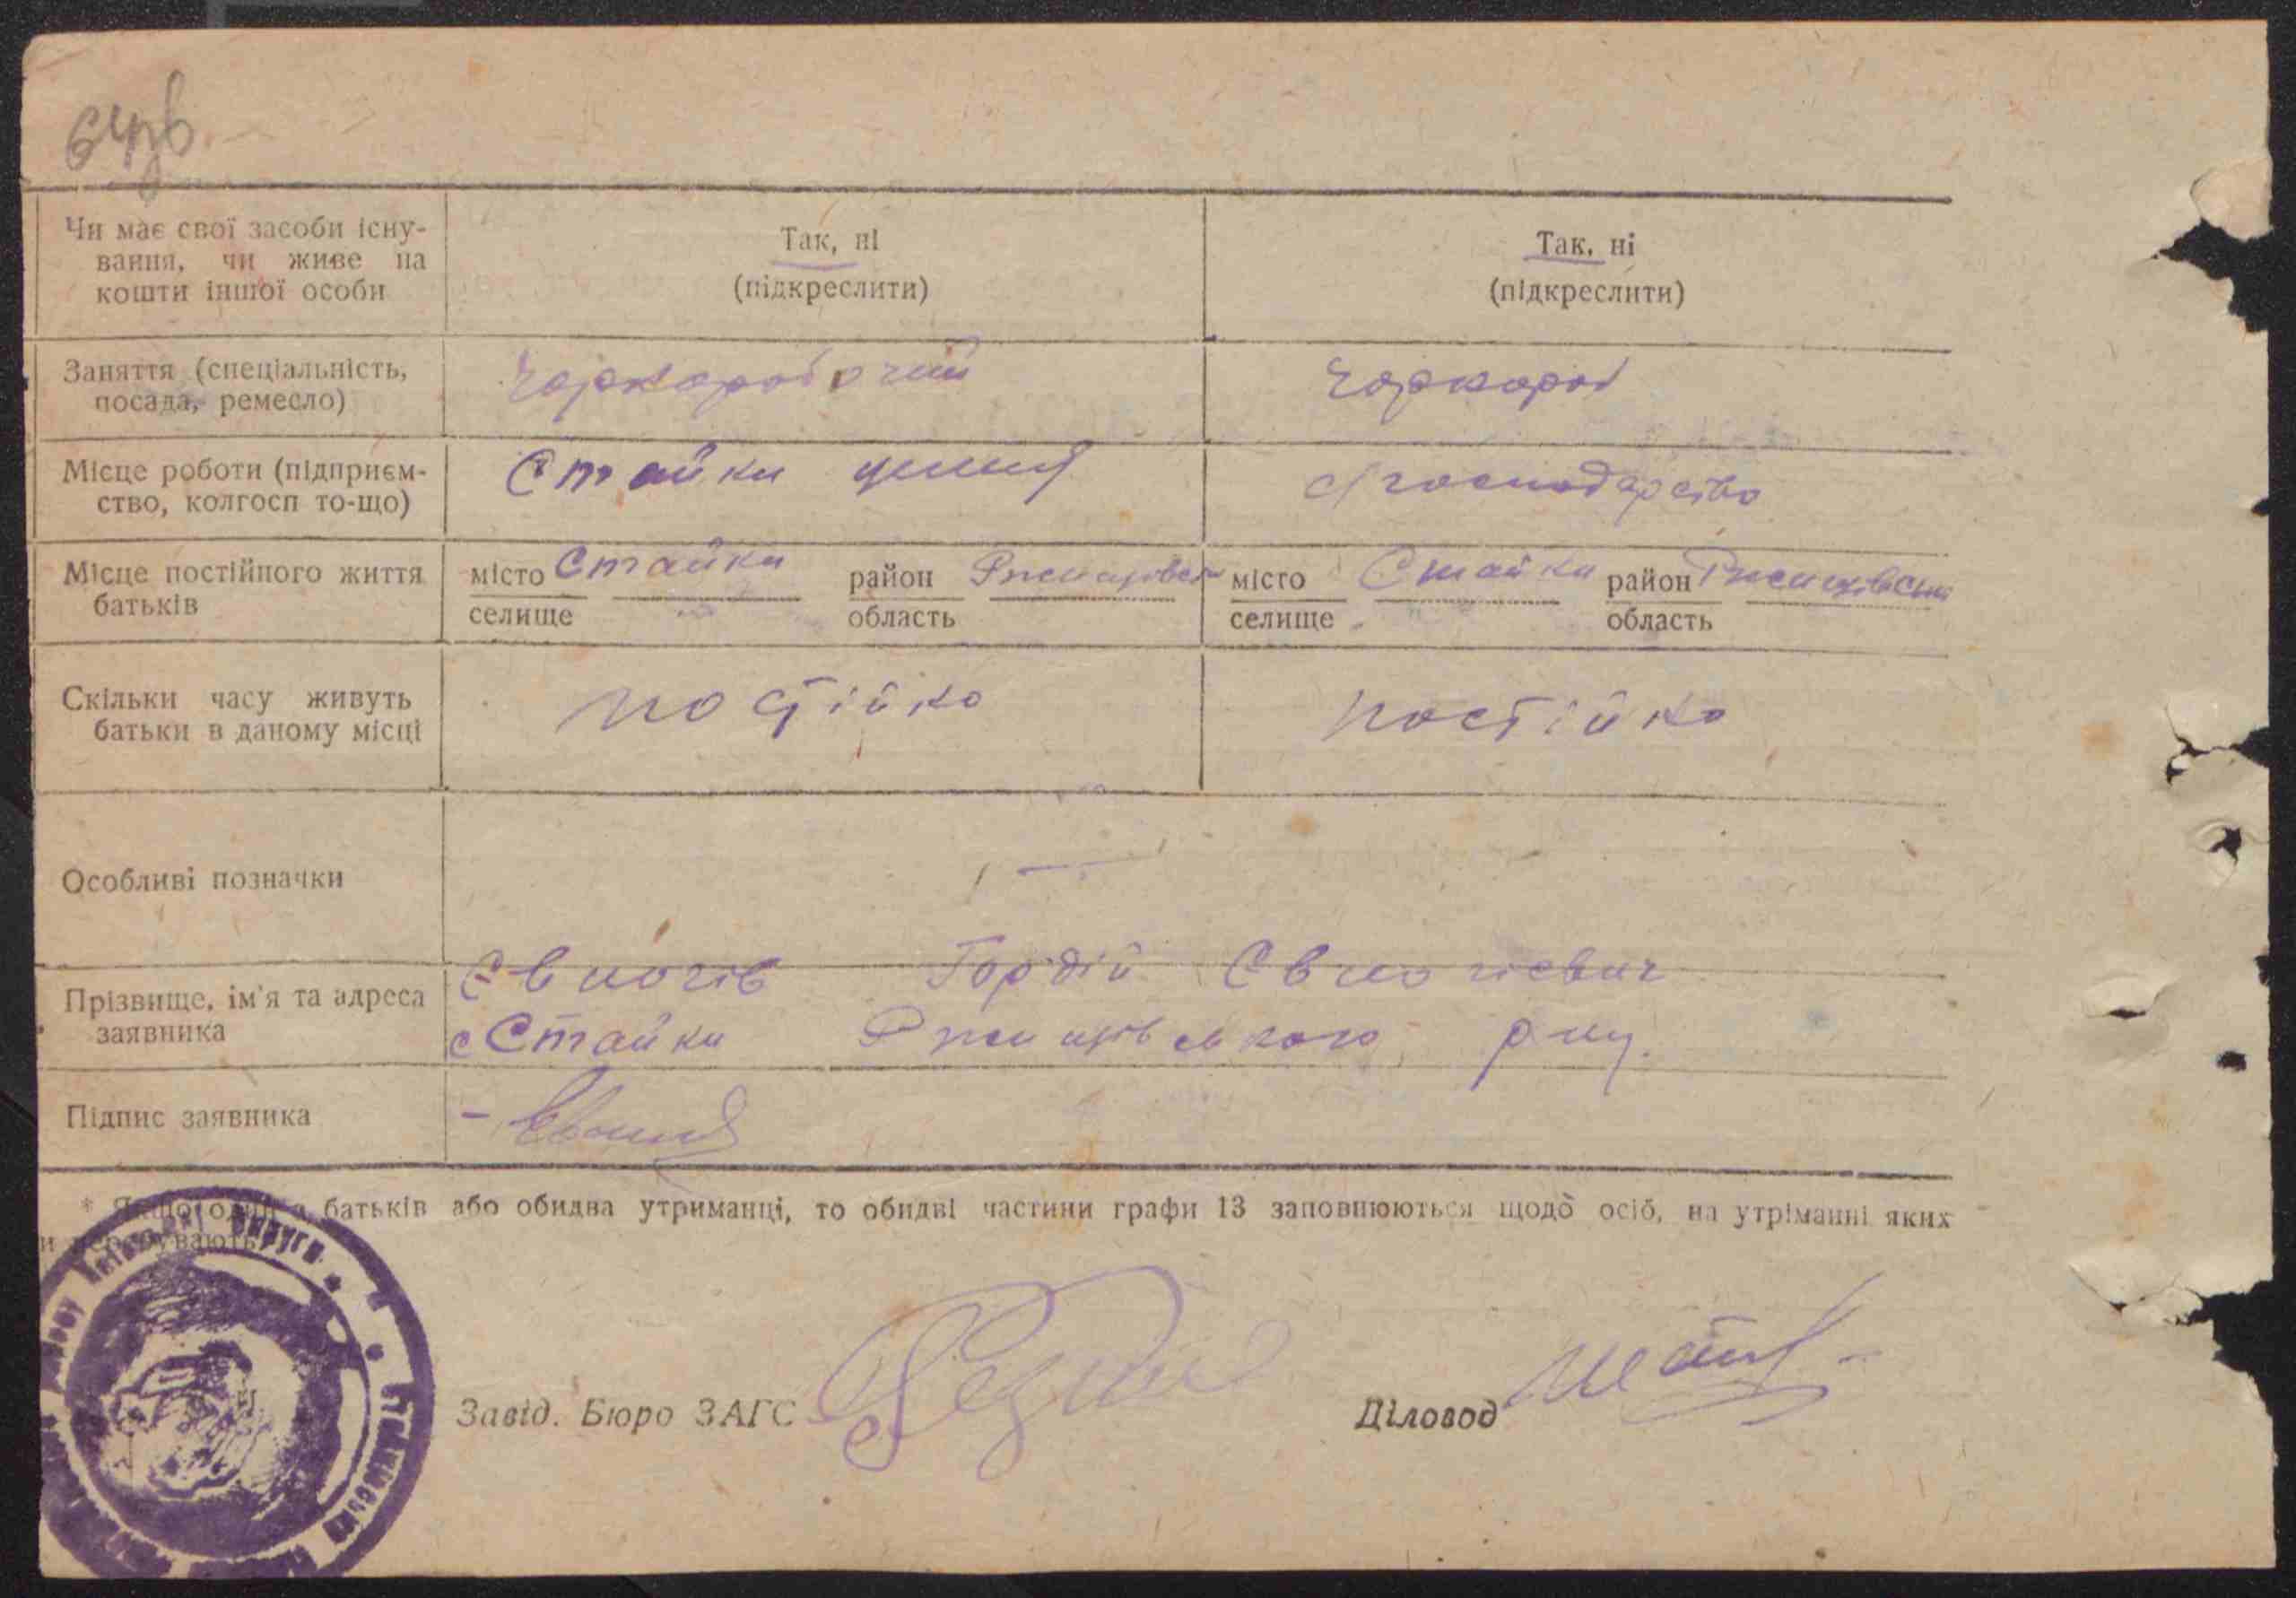 64зв.
Чи має свої засоби існу-
вання, чи живе на
кошти іншої особи
Так, ні
(підкреслити)
Так, ні
(підкреслити)
Заняття (спеціальність,
посада, ремесло)
чорноробочий
чорнороб
Місце роботи (підприєм-
ство, колгосп то-що)
Стайки
господарство
Місце постійного життя
батьків
місто Стайки район Ржищівськ
селище область
місто Стайки район Ржищівськ
селище область
Скільки часу живуть
батьки в даному місці
постійно
постійно
Особливі позначки
—
Прізвище, ім'я та адреса
заявника
Гордій
с Стайки Ржищівського р-ну.
Підпис заявника
* Якщо один з батьків або обидва утриманці, то обидві частини графи 13 заповнюються щодо осіб, на утріманні яких
и перебувають.
округи
Завід. Бюро ЗАГС
Діловод